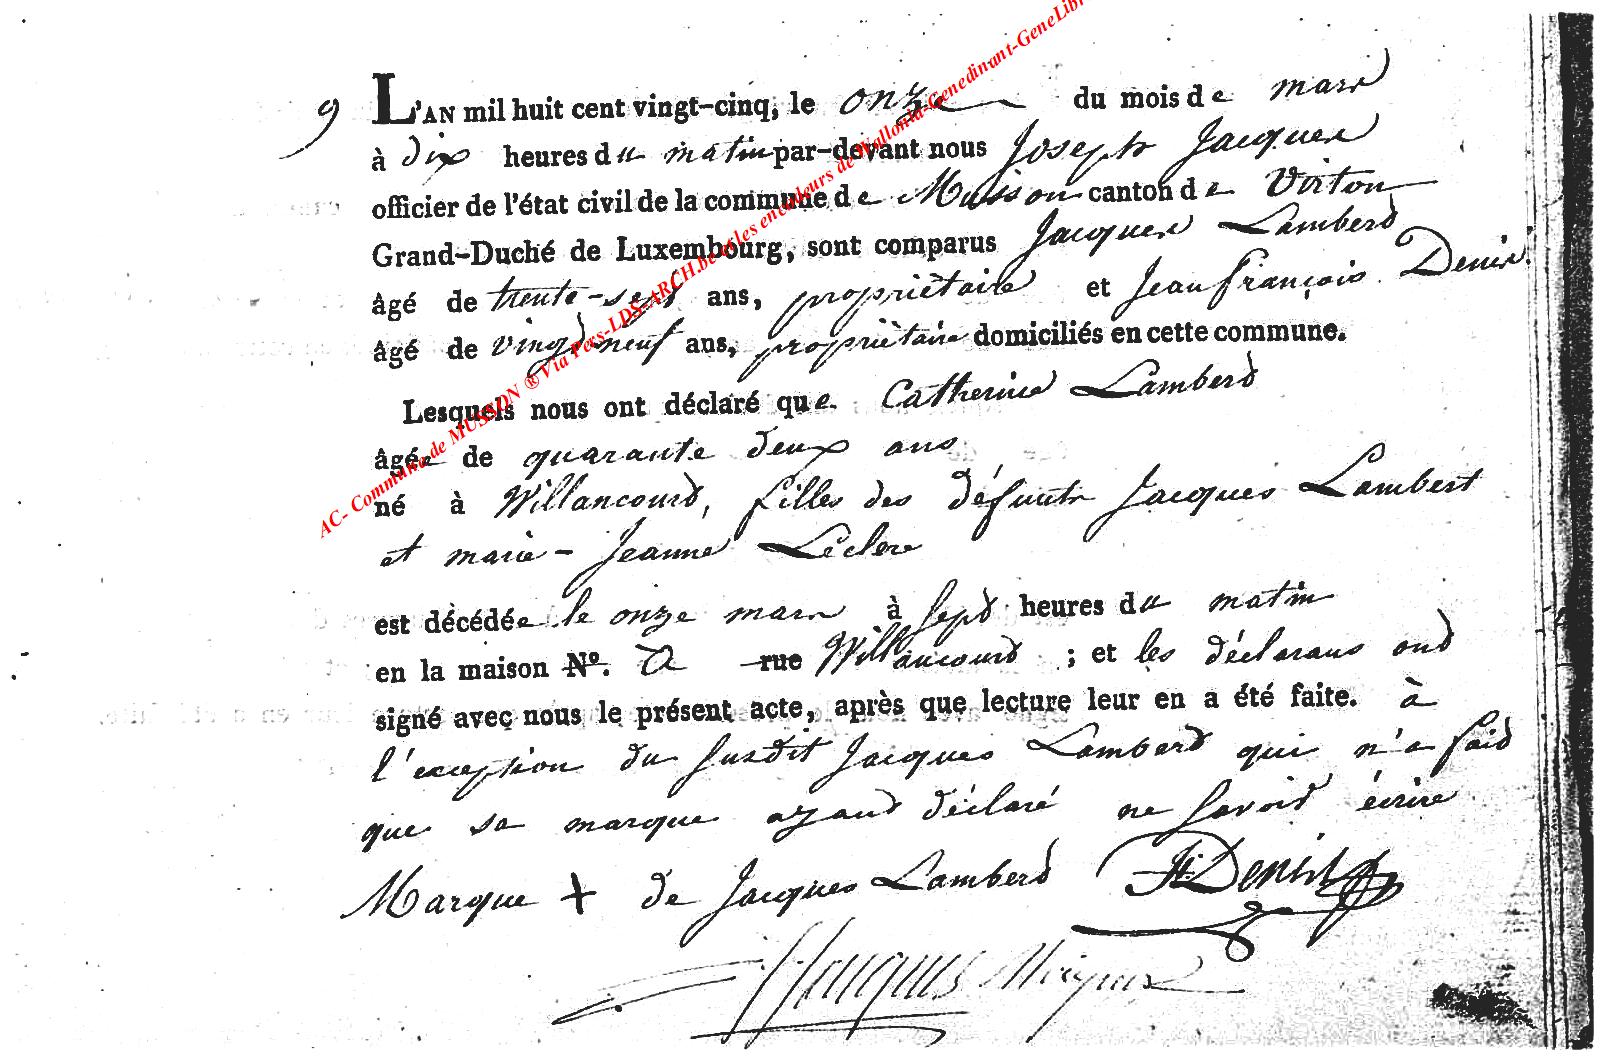 9 L'AN mil huit cent vingt-cinq, le onze du mois de mars
à dix heures du matin par-devant nous Joseph Jacques
officier de l'état civil de la commune de Musson canton de Virton
Grand-Duché de Luxembourg, sont comparus Jacques Lamberd
âgé de trente-sept ans, propriètaire et Jean François Denis
âgé de vingd-neuf ans, propriètaire domiciliés en cette commune.
Lesquels nous ont déclaré que Catherine Lamberd
âgée de quarante deux ans
né à Willancourd, filles des défunts Jacques Lambert
et marie-Jeanne Léclere
est décédée le onze mars à sept heures du matin
en la maison N°. A rue Willancourd ; et les déclarans ond
signé avec nous le présent acte, après que lecture leur en a été faite. à
l'exception du susdit Jacques Lamberd qui n'a faid
que sa marque ayand déclaré ne savoir écrire
Marque + de Jacques Lamberd Denis
Jacques
AC- Commune de MUSSON ® Via Pers-LDS-ARCH.be et les encodeurs de Wallonia-Genedinant-GeneLibr